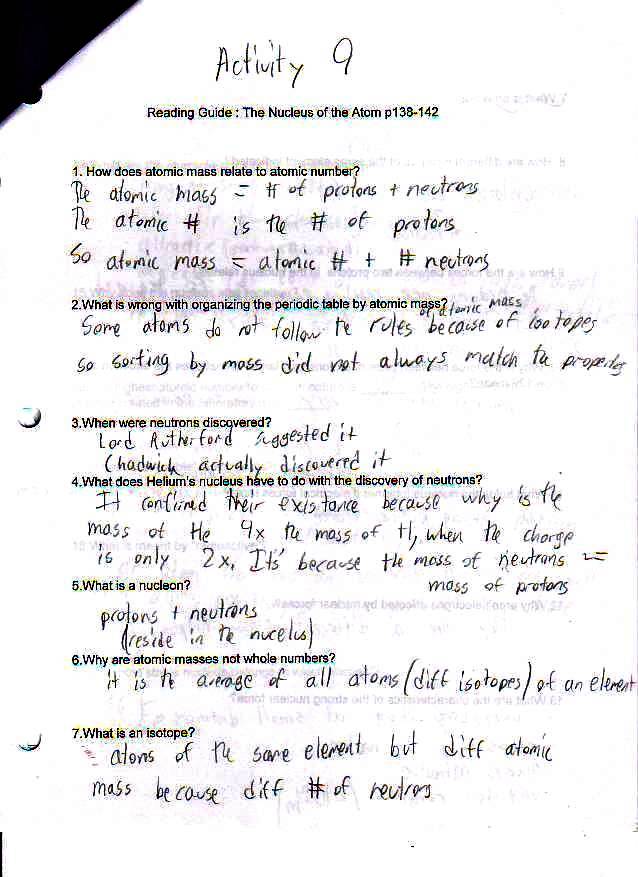 Activity 9
Reading Guide : The Nucleus of the Atom p138-142
1. How does atomic mass relate to atomic number?
The atomic mass = # of protons + neutrons
The atomic # is the # of protons
So atomic mass = atomic # + # neutrons
2.What is wrong with organizing the periodic table by atomic mass?
of atomic mass
Some atoms do not follow the rules because of isotopes
so sorting by mass did not always match the properties
3.When were neutrons discovered?
Lord Rutherford suggested it
Chadwick actually discovered it
4.What does Helium's nucleus have to do with the discovery of neutrons?
It confirmed their existance because why is the
mass of He 4x the mass of H, when the charge
is only 2x, Its' because the mass of neutrons =
mass of protons
5.What is a nucleon?
protons + neutrons
(reside in the nucelus)
6.Why are atomic masses not whole numbers?
it is the average of all atoms (diff isotopes) of an element
7.What is an isotope?
atoms of the same element but diff atomic
mass because diff # of neutrons